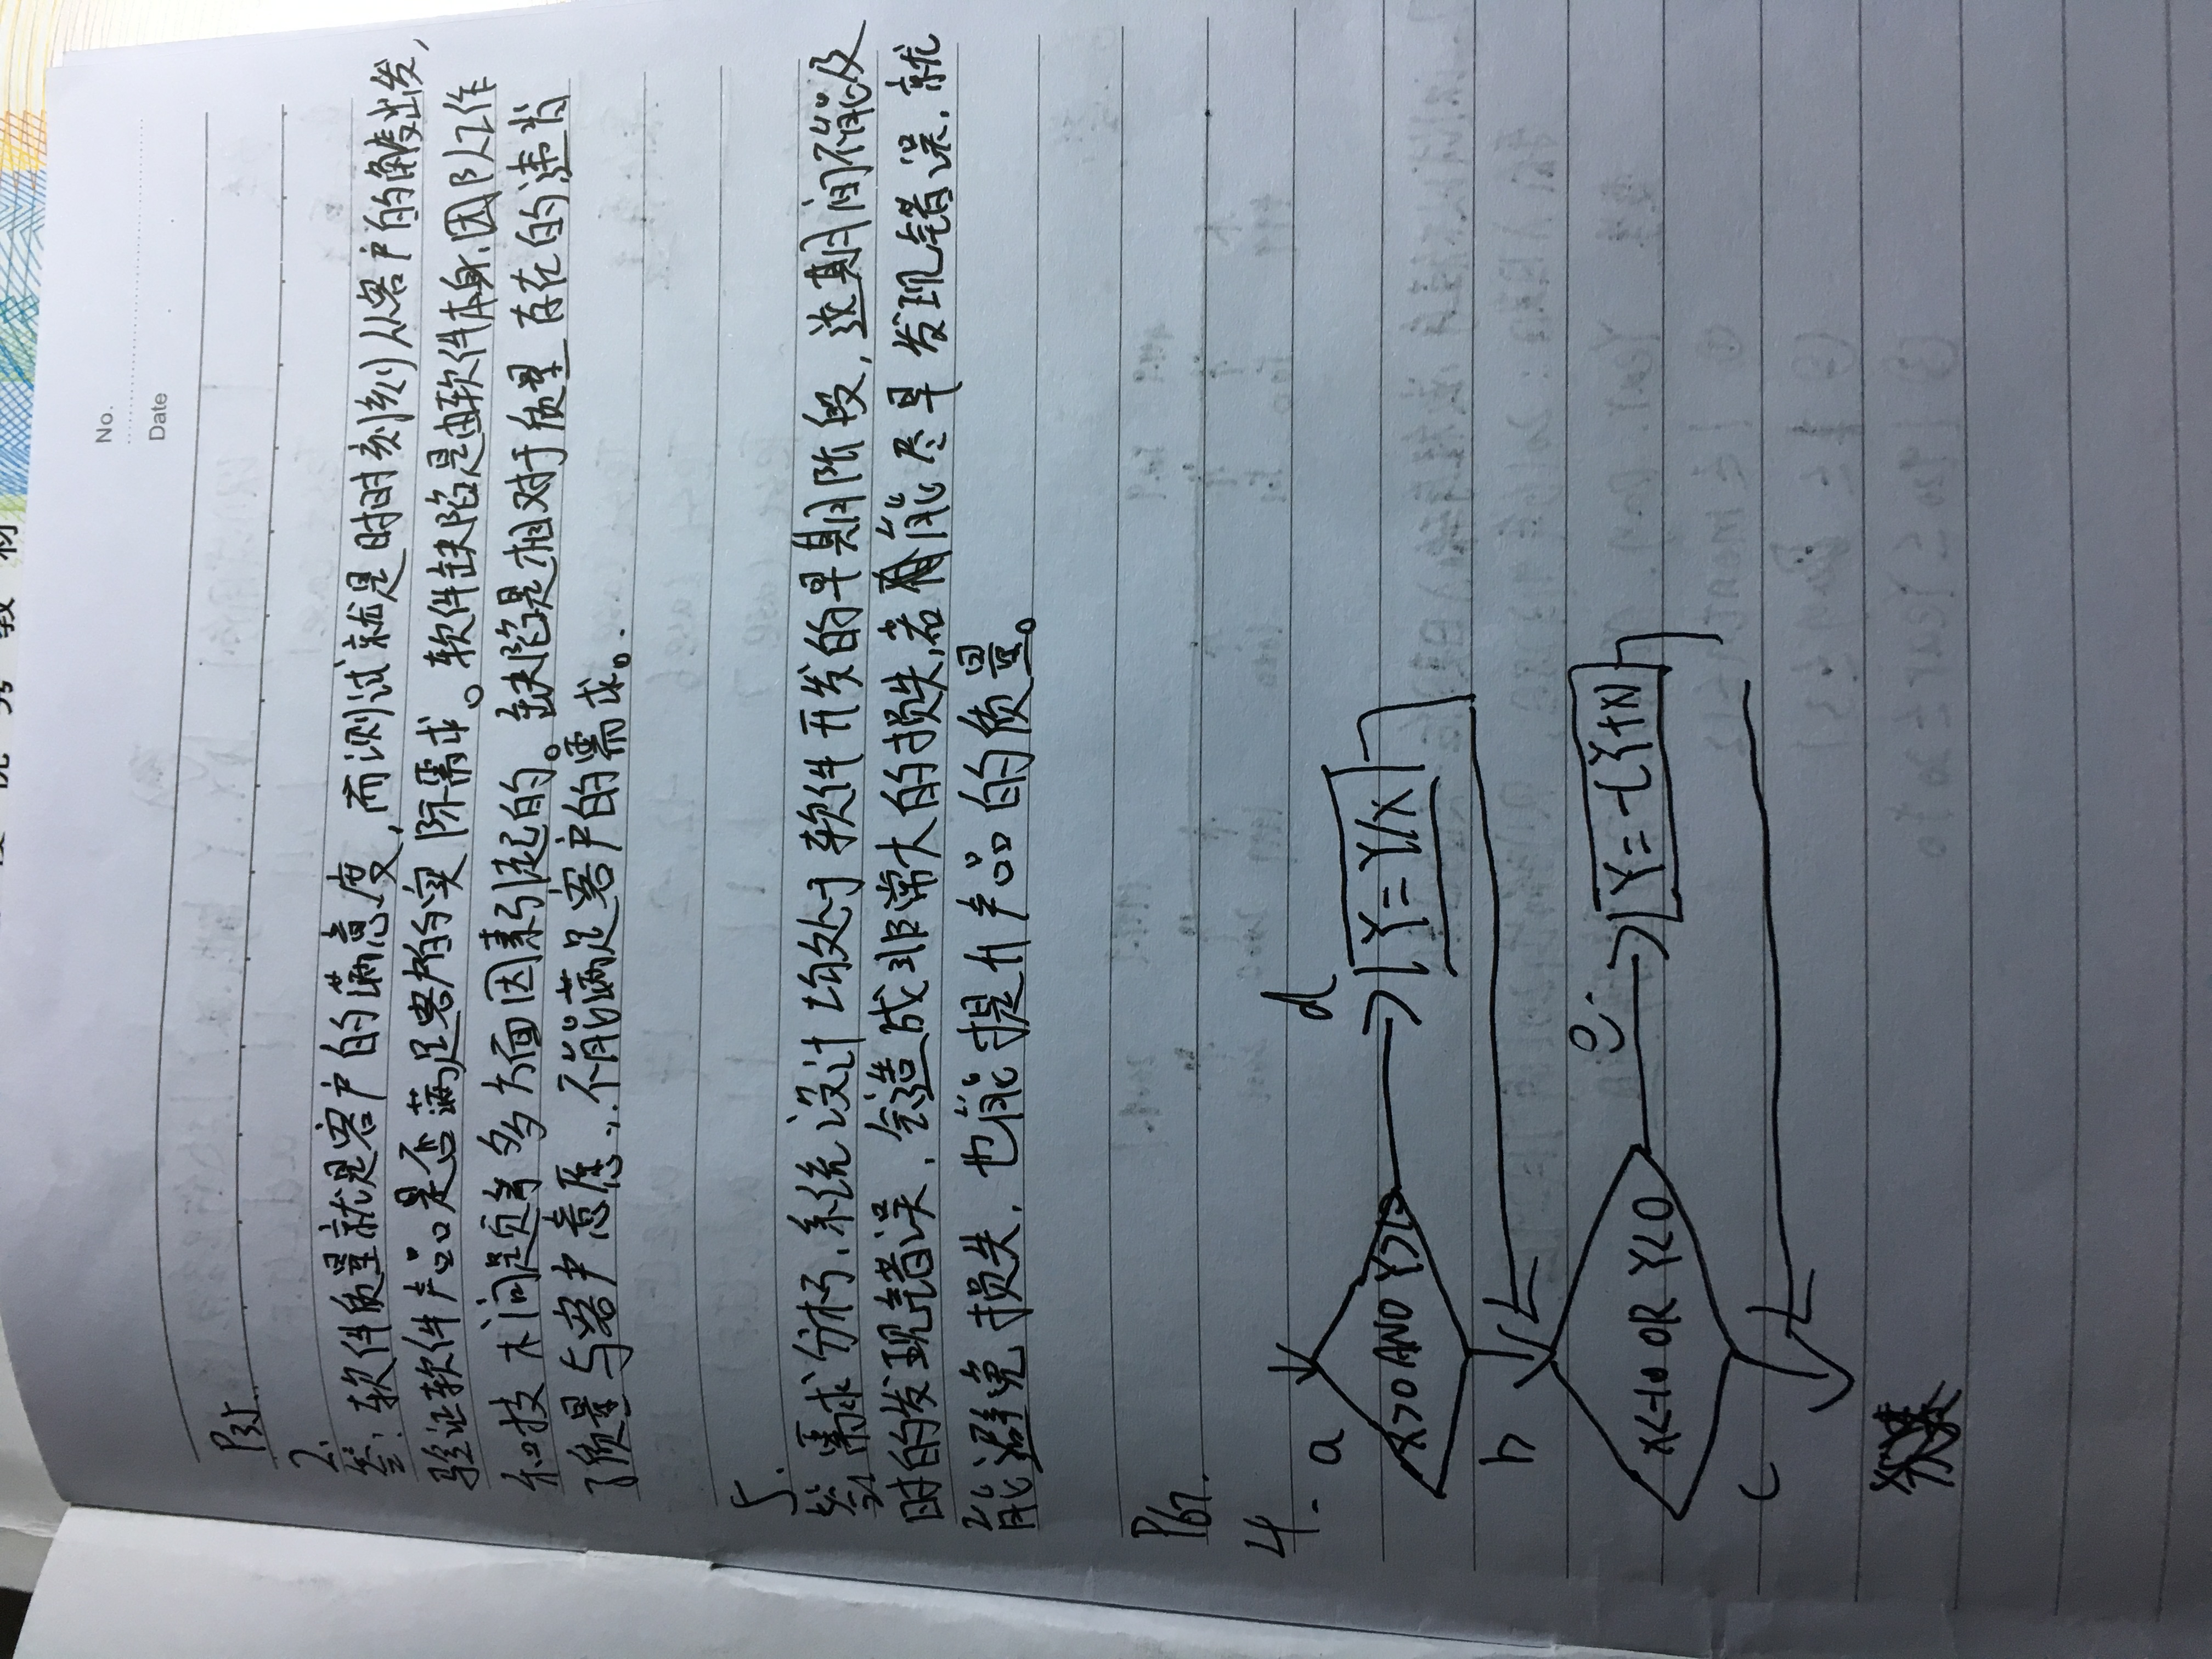 优秀教材
No.
Date
P35.
2.
答:软件质量就是客户的满意度,而测试就是时时刻刻从客户的角度出发,
验证软件产品是否满足客户的实际需求。软件缺陷是由软件本身、团队工作
和技术问题等多方面因素引起的。缺陷是相对于质量存在的,违背
了质量与客户意愿,不能满足客户的需求。
5.
答:需求分析、系统设计均处于软件开发的早期阶段,这期间不能及
时的发现错误,会造成非常大的损失,若能尽早发现错误,就
能避免损失,也能提升产品的质量。
P67.
4.
a
d
X>0 AND Y>10
Y=Y/X
b
e
X<-10 OR Y<0
Y=-(Y+X)
c